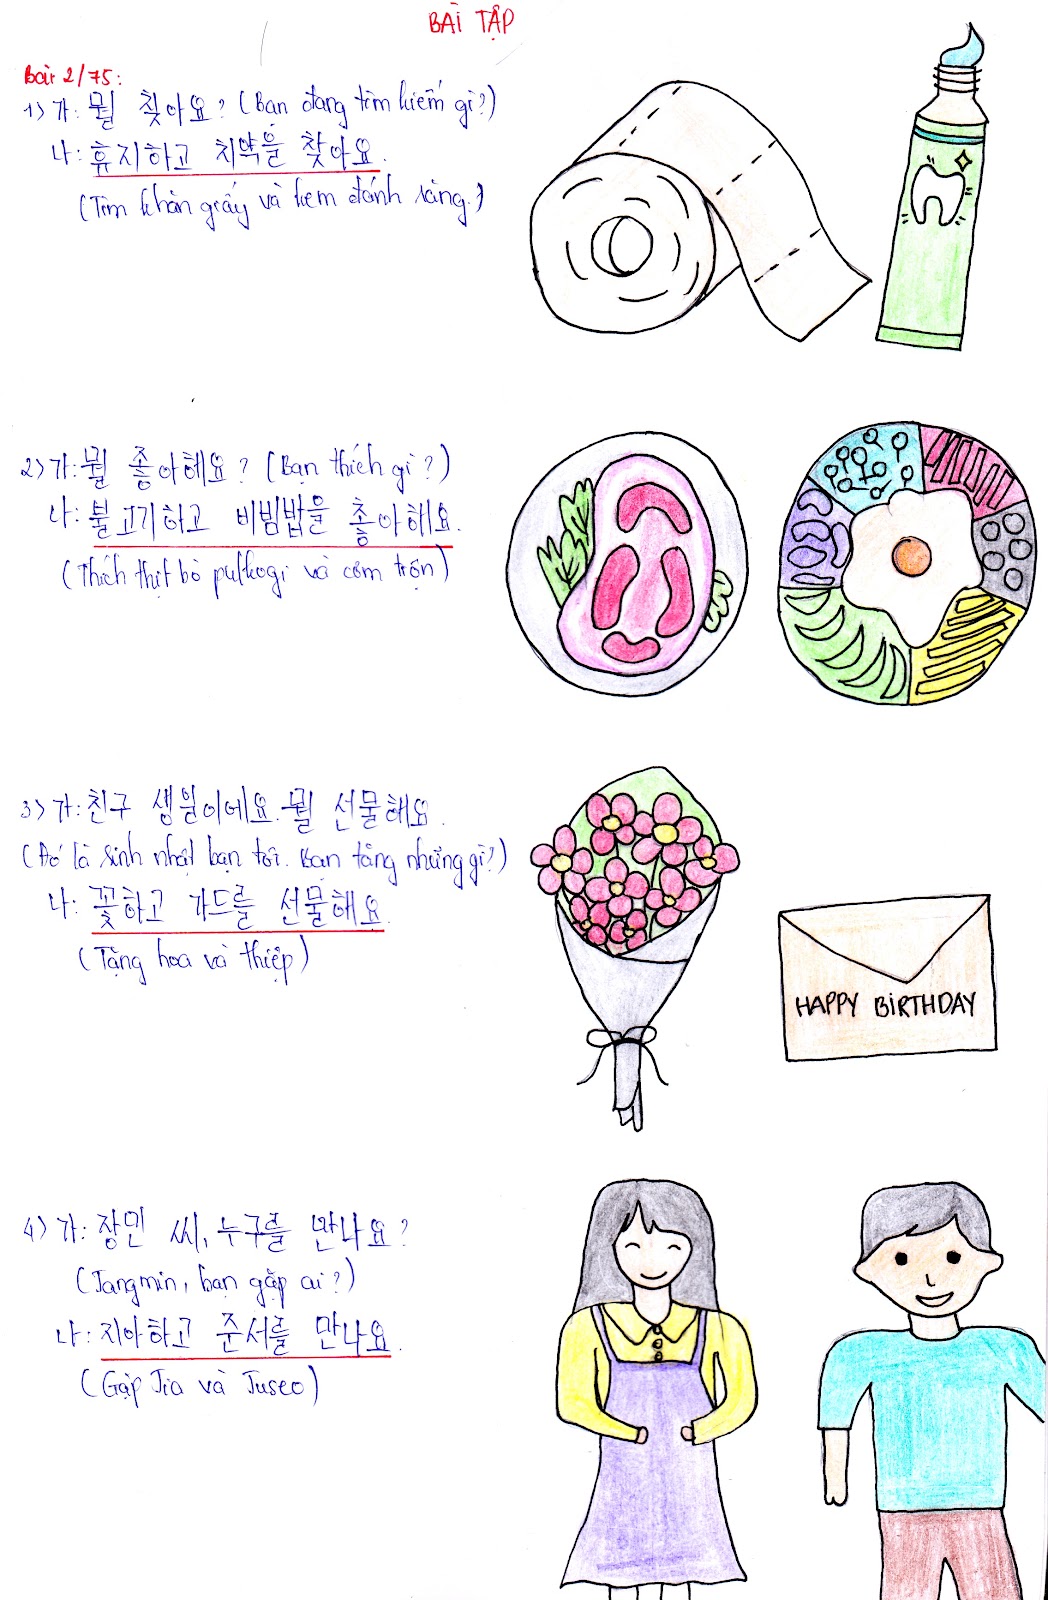 BÀI TẬP
Bài 2/75:
1) 가: 뭘 찾아요? (Bạn đang tìm kiếm gì?)
나: 휴지하고 치약을 찾아요.
(Tìm khăn giấy và kem đánh răng.)
2) 가: 뭘 좋아해요? (Bạn thích gì?)
나: 불고기하고 비빔밥을 좋아해요.
(Thích thịt bò pulkogi và cơm trộn)
3) 가: 친구 생일이에요. 뭘 선물해요.
(Đó là sinh nhật bạn tôi. Bạn tặng những gì?)
나: 꽃하고 가드를 선물해요.
(Tặng hoa và thiệp)
HAPPY BIRTHDAY
4) 가: 장민 씨, 누구를 만나요?
(Jangmin, bạn gặp ai?)
나: 지아하고 준서를 만나요.
(Gặp Jia và Juseo)